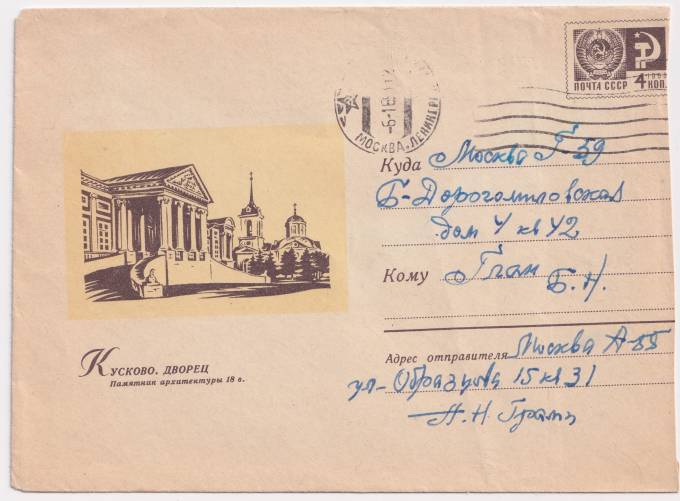 ПОЧТА СССР 4 КОП.
МОСКВА-ЛЕНИНГР
-6-1
Куда Москва Г-59
Б-Дорогомиловская
дом 4 кв 42
Кому
Б. Н.
КУСКОВО. ДВОРЕЦ
Памятник архитектуры 18 в.
Адрес отправителя Москва А-55
ул-Образцова 15 кв 31
Н. Н.